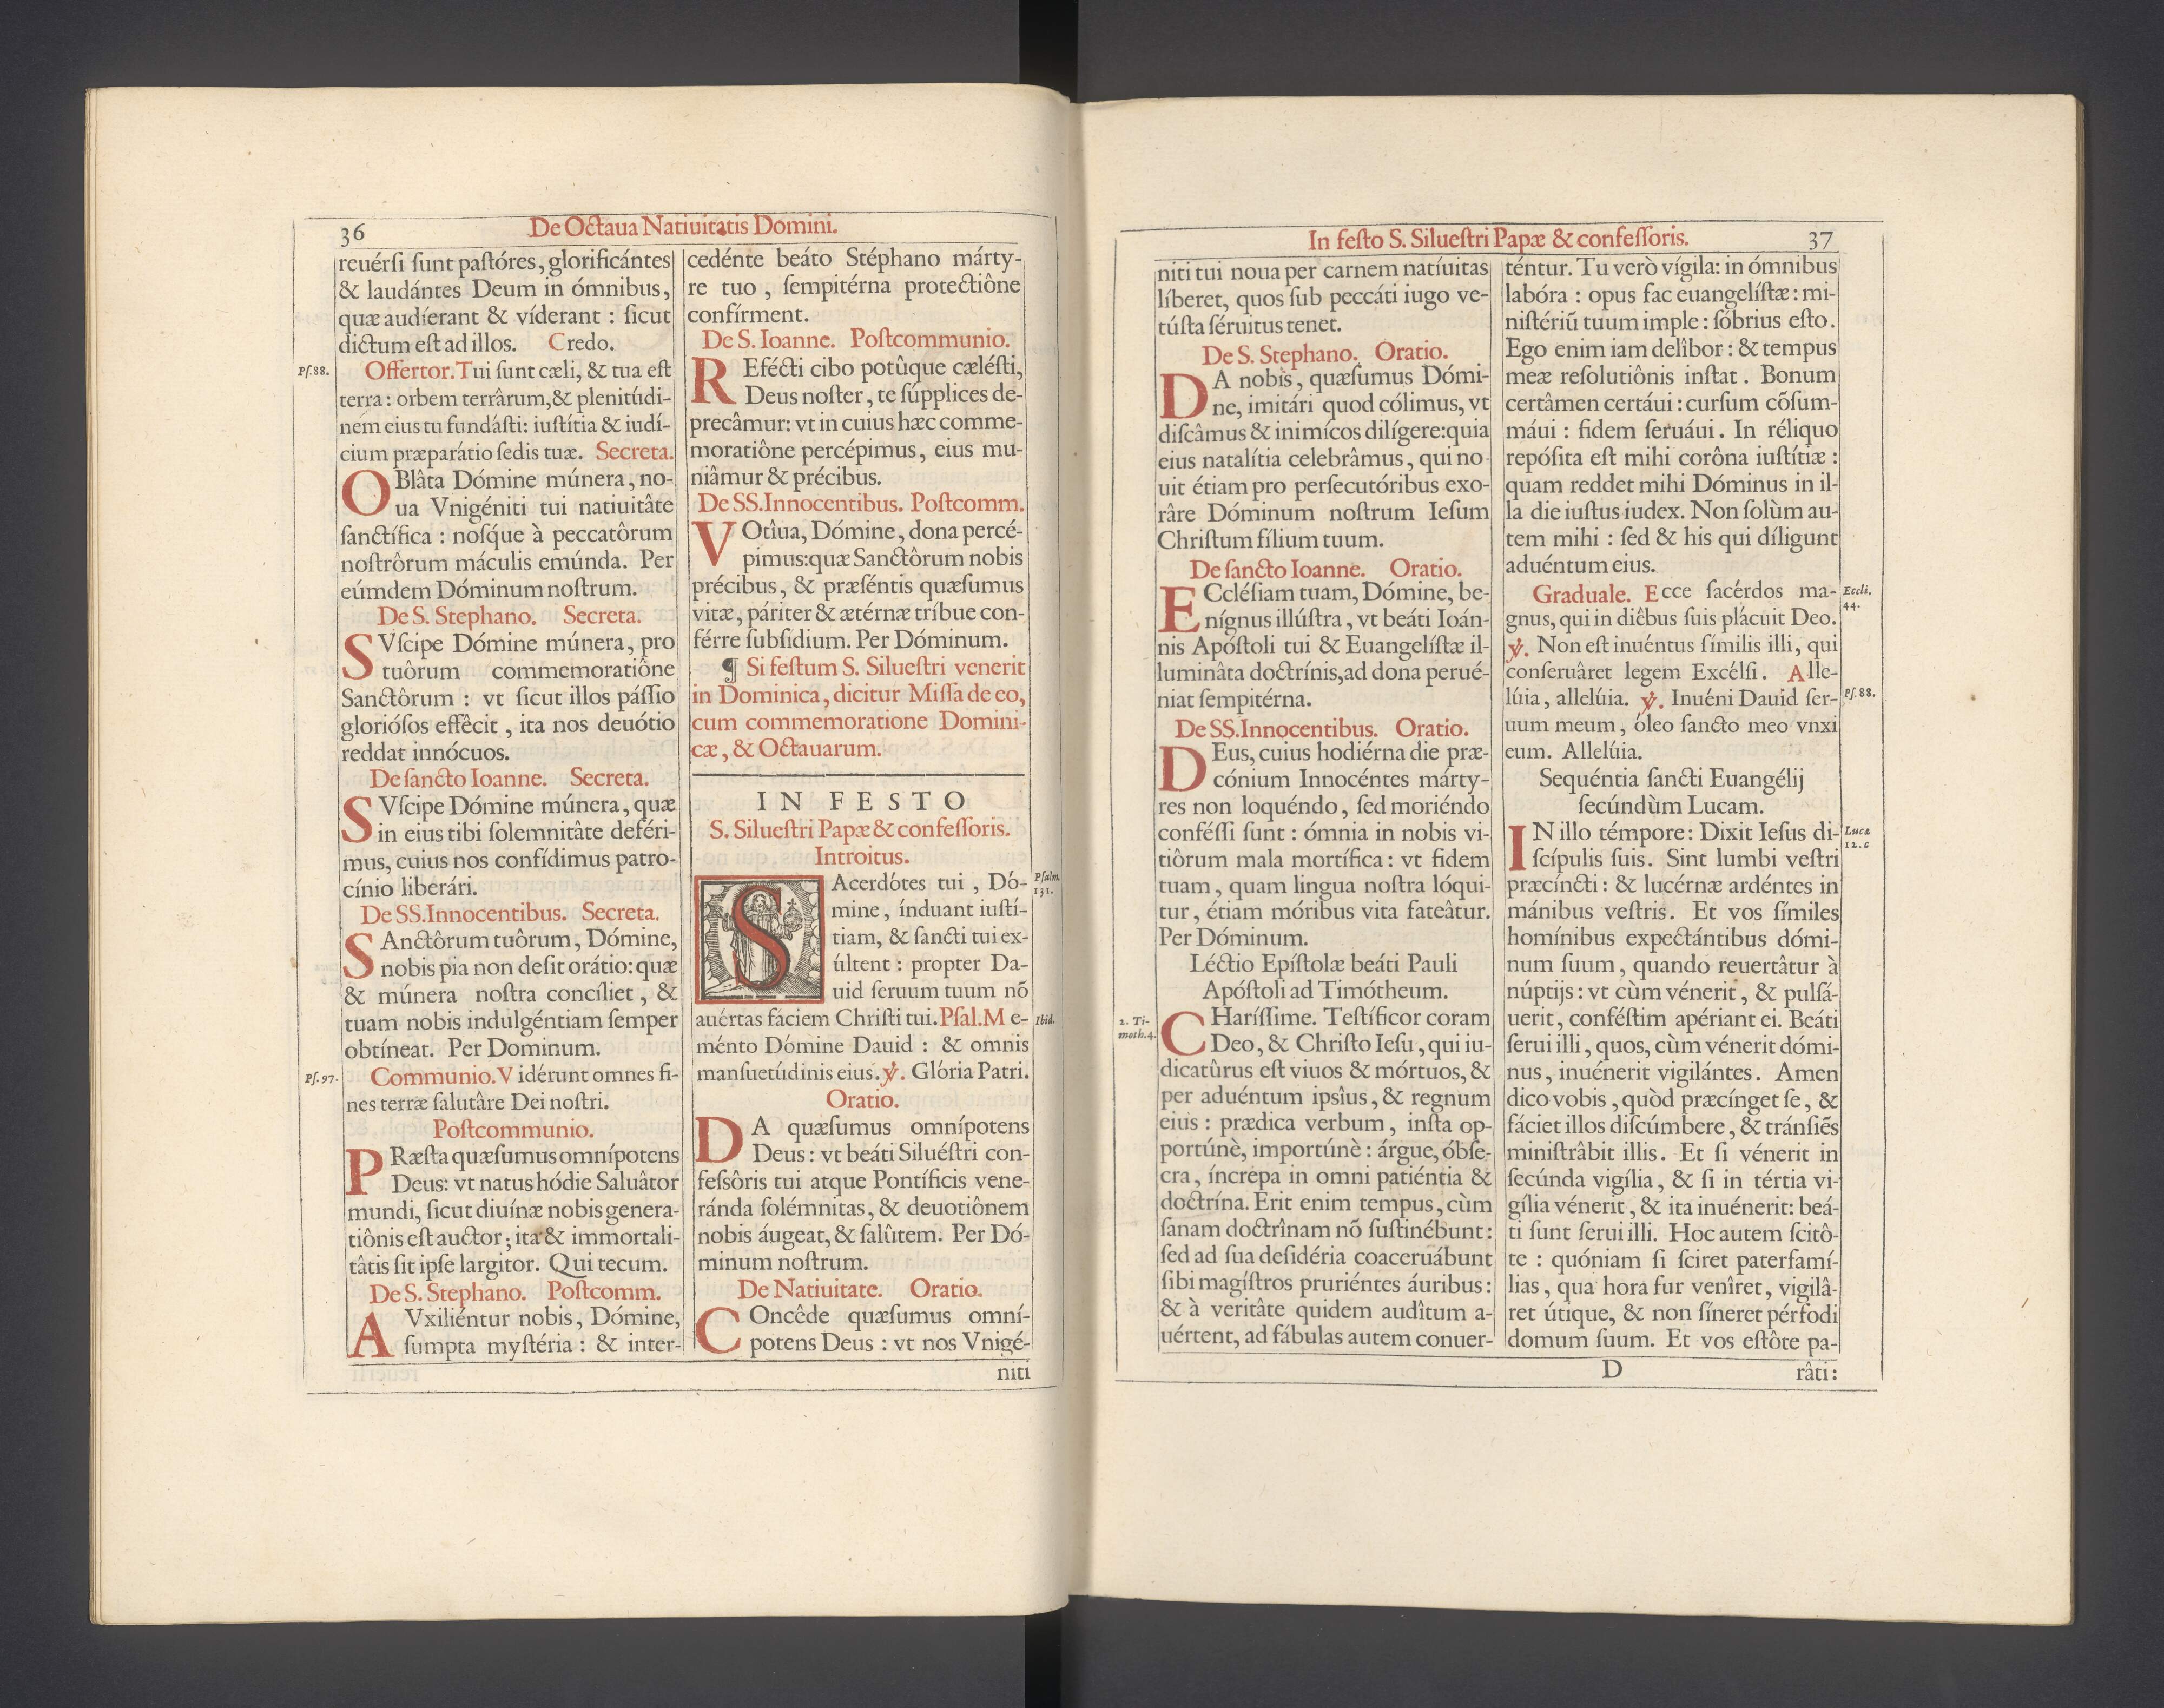 36
De Octaua Natiuitatis Domini.
reuérſi ſunt paſtóres, glorificántes
& laudántes Deum in ómnibus,
quæ audíerant & víderant : ſicut
dictum eſt ad illos. Credo.
Pſ.88.
Offertor. Tui ſunt cæli, & tua eſt
terra : orbem terrârum, & plenitúdi-
nem eius tu fundáſti: iuſtítia & iudí-
cium præparátio ſedis tuæ. Secreta.
OBlâta Dómine múnera, no-
ua Vnigéniti tui natiuitâte
ſanctífica : noſq́ue à peccatôrum
noſtrôrum máculis emúnda. Per
eúmdem Dóminum noſtrum.
De S. Stephano. Secreta.
SVſcipe Dómine múnera, pro
tuôrum commemoratiône
Sanctôrum : vt ſicut illos páſſio
glorióſos effêcit, ita nos deuótio
reddat innócuos.
De ſancto Ioanne. Secreta.
SVſcipe Dómine múnera, quæ
in eius tibi ſolemnitâte deféri-
mus, cuius nos confídimus patro-
cínio liberári.
De SS. Innocentibus. Secreta.
SAnctôrum tuôrum, Dómine,
nobis pia non deſit orátio: quæ
& múnera noſtra concíliet, &
tuam nobis indulgéntiam ſemper
obtíneat. Per Dominum.
Pſ.97.
Communio. Vidérunt omnes fi-
nes terræ ſalutâre Dei noſtri.
Poſtcommunio.
PRæſta quæſumus omnípotens
Deus: vt natus hódie Saluâtor
mundi, ſicut diuínæ nobis genera-
tiônis eſt auctor ; ita & immortali-
tâtis ſit ipſe largitor. Qui tecum.
De S. Stephano. Poſtcomm.
AVxiliéntur nobis, Dómine,
ſumpta myſtéria : & inter-
cedénte beáto Stéphano márty-
re tuo, ſempitérna protectiône
confírment.
De S. Ioanne. Poſtcommunio.
REfécti cibo potûque cæléſti,
Deus noſter, te ſúpplices de-
precâmur: vt in cuius hæc comme-
moratiône percépimus, eius mu-
niâmur & précibus.
De SS. Innocentibus. Poſtcomm.
VOtîua, Dómine, dona percé-
pimus: quæ Sanctôrum nobis
précibus, & præſéntis quæſumus
vitæ, páriter & ætérnæ tríbue con-
férre ſubſidium. Per Dóminum.
¶ Si feſtum S. Silueſtri venerit
in Dominica, dicitur Miſſa de eo,
cum commemoratione Domini-
cæ, & Octauarum.
IN FESTO
S. Silueſtri Papæ & confeſſoris.
Introitus.
SAcerdótes tui, Dó-
mine, índuant iuſtí-
tiam, & ſancti tui ex-
últent : propter Da-
uid ſeruum tuum nõ
auértas fáciem Chriſti tui. Pſal. Me-
ménto Dómine Dauid : & omnis
manſuetúdinis eius. ℣. Glória Patri.
Pſalm.
131.
Ibid.
Oratio.
DA quæſumus omnípotens
Deus : vt beáti Siluéſtri con-
feſſôris tui atque Pontíficis vene-
ránda ſolémnitas, & deuotiônem
nobis áugeat, & ſalûtem. Per Dó-
minum noſtrum.
De Natiuitate. Oratio.
COncêde quæſumus omní-
potens Deus : vt nos Vnigé-
niti
In feſto S. Silueſtri Papæ & confeſſoris.
37
niti tui noua per carnem natíuitas
líberet, quos ſub peccáti iugo ve-
túſta ſéruitus tenet.
De S. Stephano. Oratio.
DA nobis, quæſumus Dómi-
ne, imitári quod cólimus, vt
diſcâmus & inimícos dilígere: quia
eius natalítia celebrâmus, qui no-
uit étiam pro perſecutóribus exo-
râre Dóminum noſtrum Ieſum
Chriſtum fílium tuum.
De ſancto Ioanne. Oratio.
EccléSiam tuam, Dómine, be-
nígnus illúſtra, vt beáti Ioán-
nis Apóſtoli tui & Euangelíſtæ il-
lumináta doctrínis, ad dona perué-
niat ſempitérna.
De SS. Innocentibus. Oratio.
DEus, cuius hodiérna die præ-
cónium Innocéntes márty-
res non loquéndo, ſed moriéndo
conféſſi ſunt : ómnia in nobis vi-
tiôrum mala mortífica : vt fidem
tuam, quam lingua noſtra lóqui-
tur, étiam móribus vita fateâtur.
Per Dóminum.
Léctio Epíſtolæ beáti Pauli
Apóſtoli ad Timótheum.
2. Ti-
moth.4.
CHaríſſime. Teſtíficor coram
Deo, & Chriſto Ieſu, qui iu-
dicatûrus eſt viuos & mórtuos, &
per aduéntum ipsîus, & regnum
eius : prædica verbum, inſta op-
portúnè, importúnè : árgue, óbſe-
cra, íncrepa in omni patiéntia &
doctrína. Erit enim tempus, cùm
ſanam doctrînam nõ ſuſtinébunt :
ſed ad ſua deſidéria coaceruábunt
ſibi magíſtros pruriéntes áuribus :
& à veritâte quidem audîtum a-
uértent, ad fábulas autem conuer-
téntur. Tu verò vígila: in ómnibus
labóra : opus fac euangelíſtæ : mi-
niſtériũ tuum imple : ſóbrius eſto.
Ego enim iam delîbor : & tempus
meæ reſolutiônis inſtat. Bonum
certâmen certáui : curſum cõſum-
máui : fidem ſeruáui. In réliquo
repóſita eſt mihi corôna iuſtítiæ :
quam reddet mihi Dóminus in il-
la die iuſtus iudex. Non ſolùm au-
tem mihi : ſed & his qui díligunt
aduéntum eius.
Graduale. Ecce ſacérdos ma-
gnus, qui in diêbus ſuis plácuit Deo.
℣. Non eſt inuéntus ſímilis illi, qui
conſeruâret legem Excélſi. Alle-
lúia, allelúia. ℣. Inuéni Dauid ſer-
uum meum, óleo ſancto meo vnxi
eum. Allelúia.
Eccli.
44.
Pſ.88.
Sequéntia ſancti Euangélij
ſecúndùm Lucam.
Lucæ
12.6
IN illo témpore: Dixit Ieſus di-
ſcípulis ſuis. Sint lumbi veſtri
præcíncti : & lucérnæ ardéntes in
mánibus veſtris. Et vos ſímiles
homínibus expectántibus dómi-
num ſuum, quando reuertâtur à
núptijs : vt cùm vénerit, & pulſá-
uerit, conféſtim apériant ei. Beáti
ſerui illi, quos, cùm vénerit dómi-
nus, inuénerit vigilántes. Amen
dico vobis, quòd præcínget ſe, &
fáciet illos diſcúmbere, & tránſiẽs
miniſtrâbit illis. Et ſi vénerit in
ſecúnda vigília, & ſi in tértia vi-
gília vénerit, & ita inuénerit: beá-
ti ſunt ſerui illi. Hoc autem ſcitô-
te : quóniam ſi ſciret paterfamí-
lias, qua hora fur venîret, vigilâ-
ret útique, & non ſíneret pérfodi
domum ſuum. Et vos eſtôte pa-
D
râti :